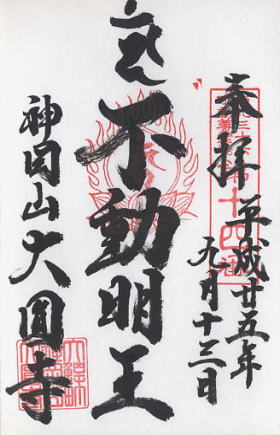 奉拝
平成廿五年
九月十三日
不動明王
神田山大圓寺